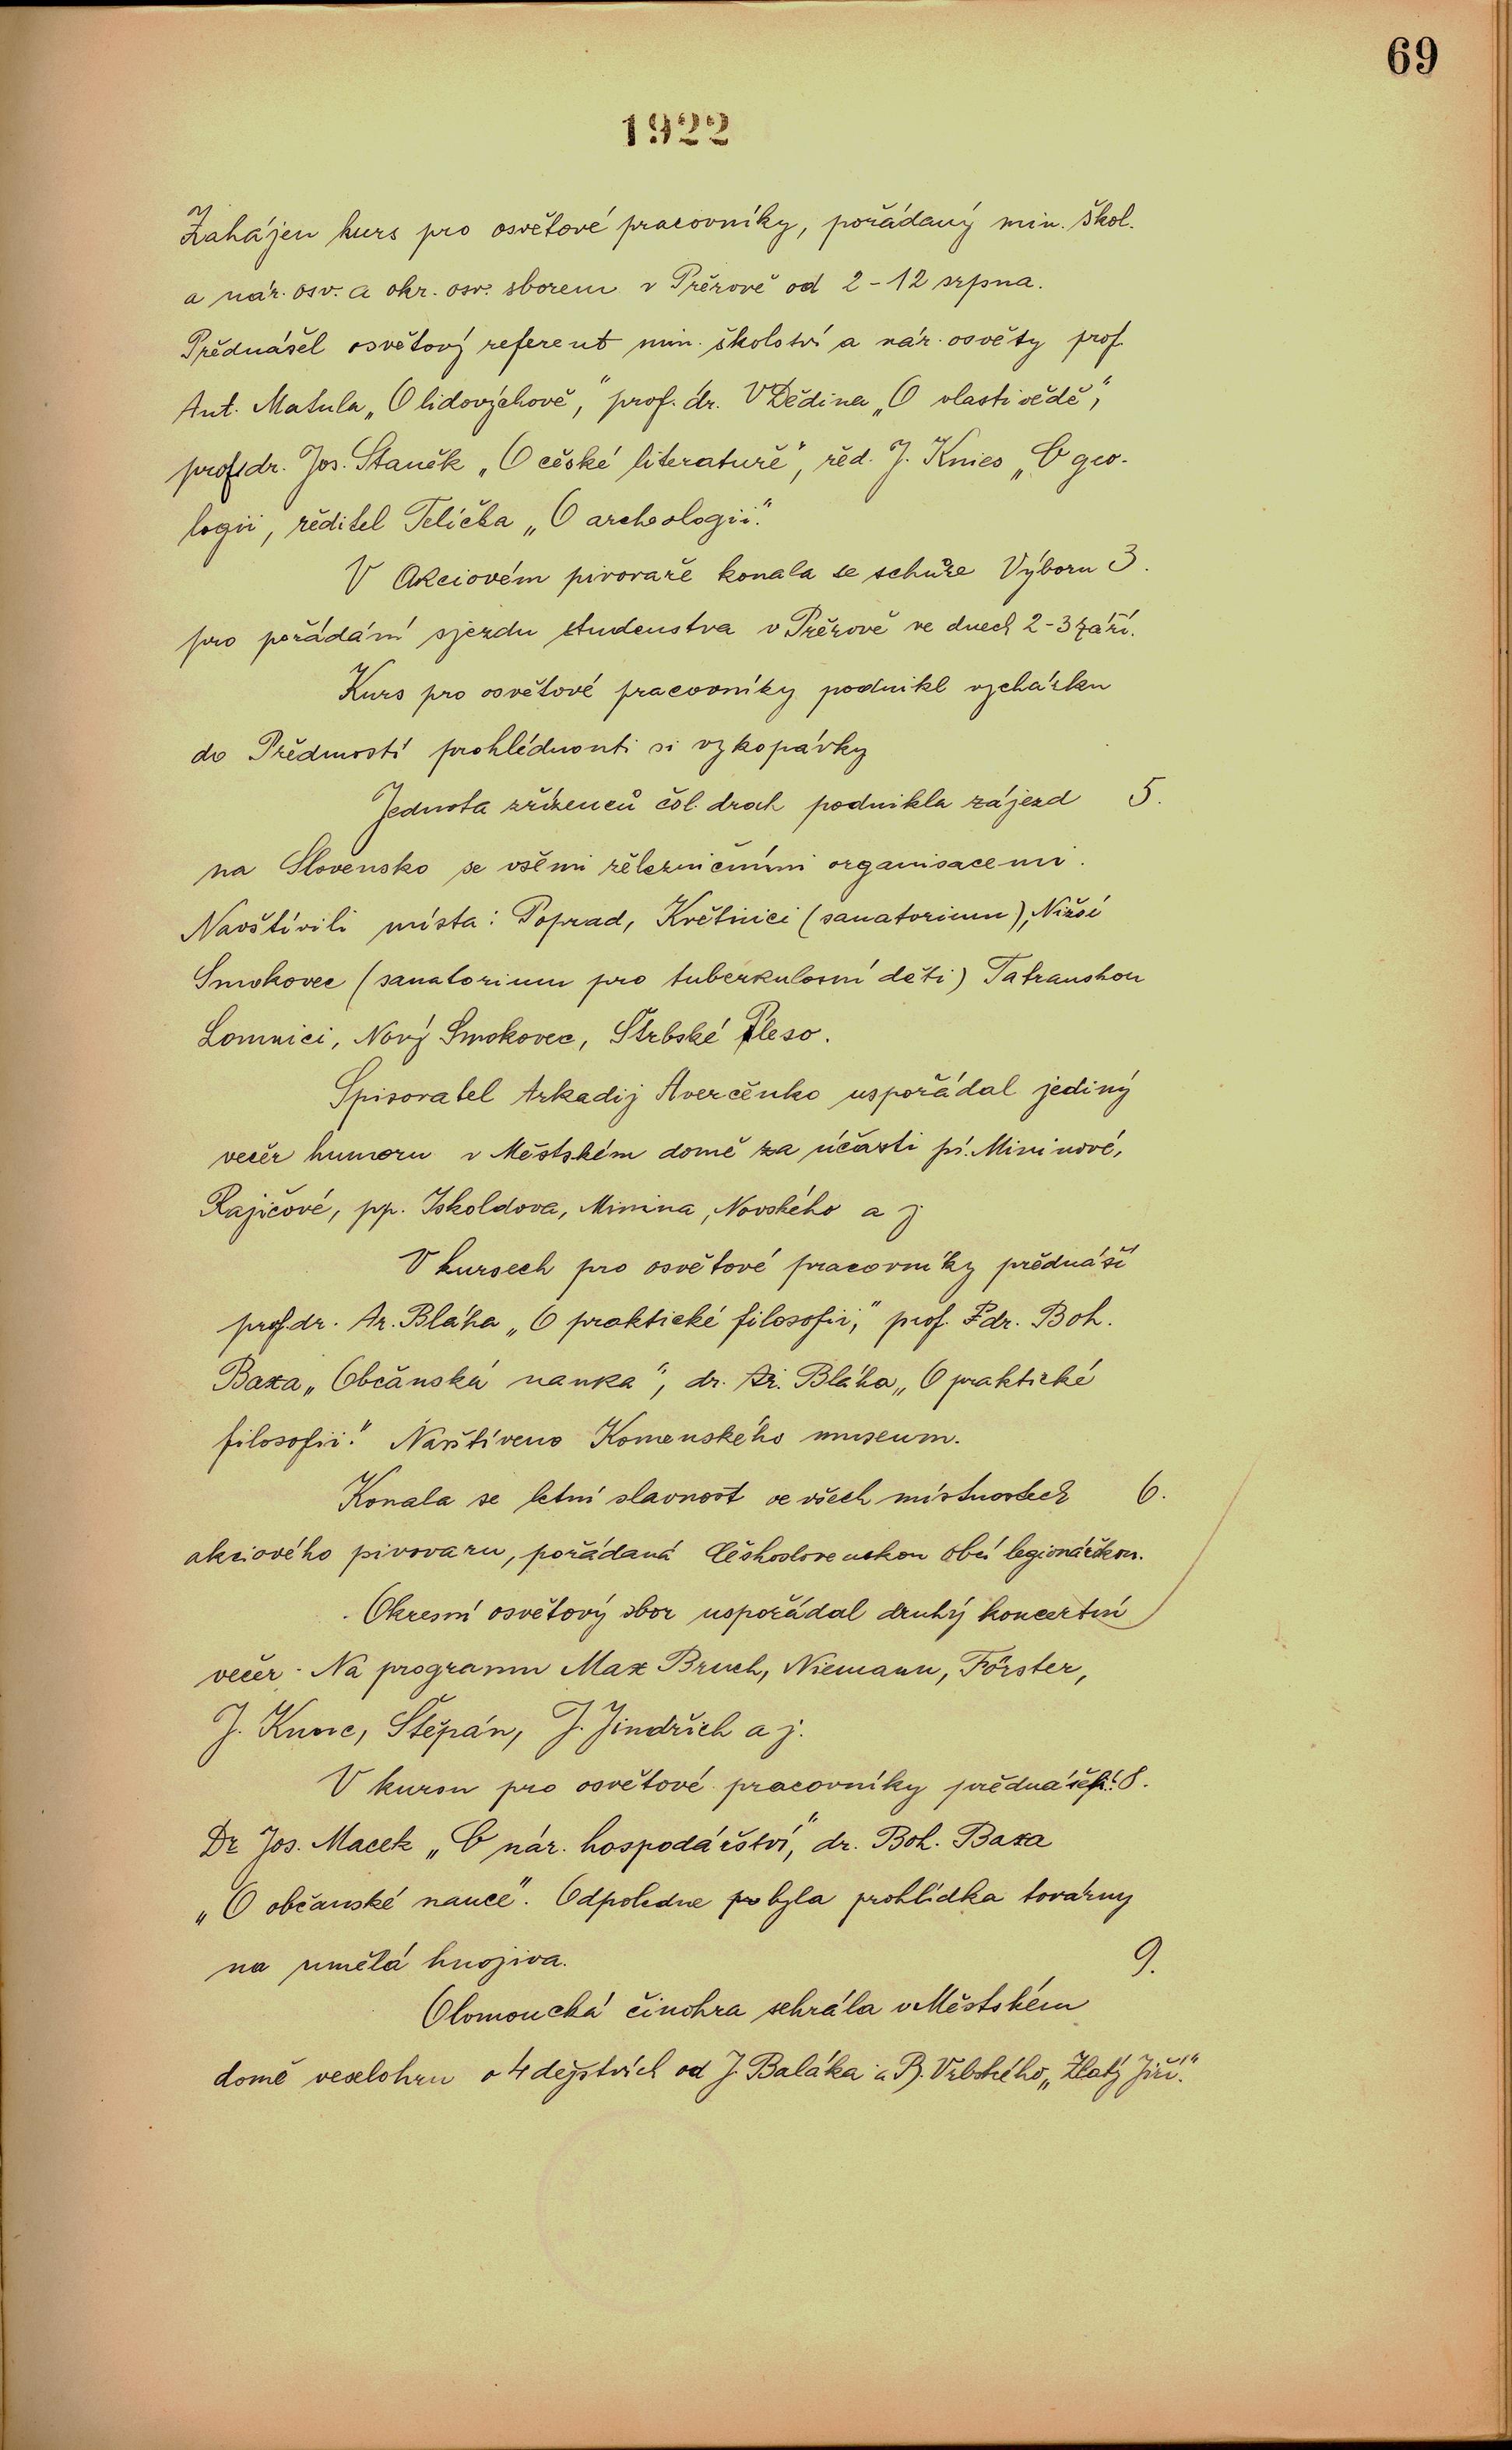 69
1922
Zahájen kurs pro osvětové pracovníky, pořádaný min. škol.
a nár. osv. a okr. osv. sborem v Přerově od 2-12 srpna.
Přednášel osvětový referent min. školství a nár. osvěty prof.
Ant. Matula „O lidovýchově,“ prof. dr. V Dědina „O vlastivědě“,
prof. dr. Jos. Staněk „O české literatuře“, řed. J. Knies „O geo-
logii, ředitel Telička „O archeologii.“
V Akciovém pivovaře konala se schůze Výboru 3.
pro pořádání sjezdu studenstva v Přerově ve dnech 2-3 září.
Kurs pro osvětové pracovníky podnikl vycházku
do Předmostí prohlédnouti si vykopávky
Jednota zřízenců čsl. drah podnikla zájezd 5.
na Slovensko se všemi železničními organisacemi.
Navštívili místa: Poprad, Květnici (sanatorium), Nižší
Smokovec (sanatorium pro tuberkulosní děti) Tatranskou
Lomnici, Nový Smokovec, Štrbské Pleso.
Spisovatel Arkadij Averčenko uspořádal jediný
večer humoru v Městském domě za účasti pí. Mininové,
Rajičové, pp. Iskoldova, Minina, Novského a j.
V kursech pro osvětové pracovníky přednáší
prof. dr. Ar. Bláha „O praktické filosofii,“ prof. dr. Boh.
Baxa „Občanská nauka“, dr. Ar. Bláha „O praktické
filosofii.“ Navštíveno Komenského museum.
Konala se letní slavnost ve všech místnostech 6.
akciového pivovaru, pořádaná Československou obcí legionářskou.
Okresní osvětový sbor uspořádal druhý koncertní
večer. Na programu Max Bruch, Niemann, Förster,
J. Kunc, Štěpán, J. Jindřich a j.
V kursu pro osvětové pracovníky 8.
Dr Jos. Macek „O nár. hospodářství,“ dr. Boh. Baxa
„O občanské nauce“. Odpoledne byla prohlídka továrny
na umělá hnojiva.
9.
Olomoucká činohra sehrála v Městském
domě veselohru o 4 dějstvích od J. Baláka a B. Vrbského „Zlatý Jiří.“